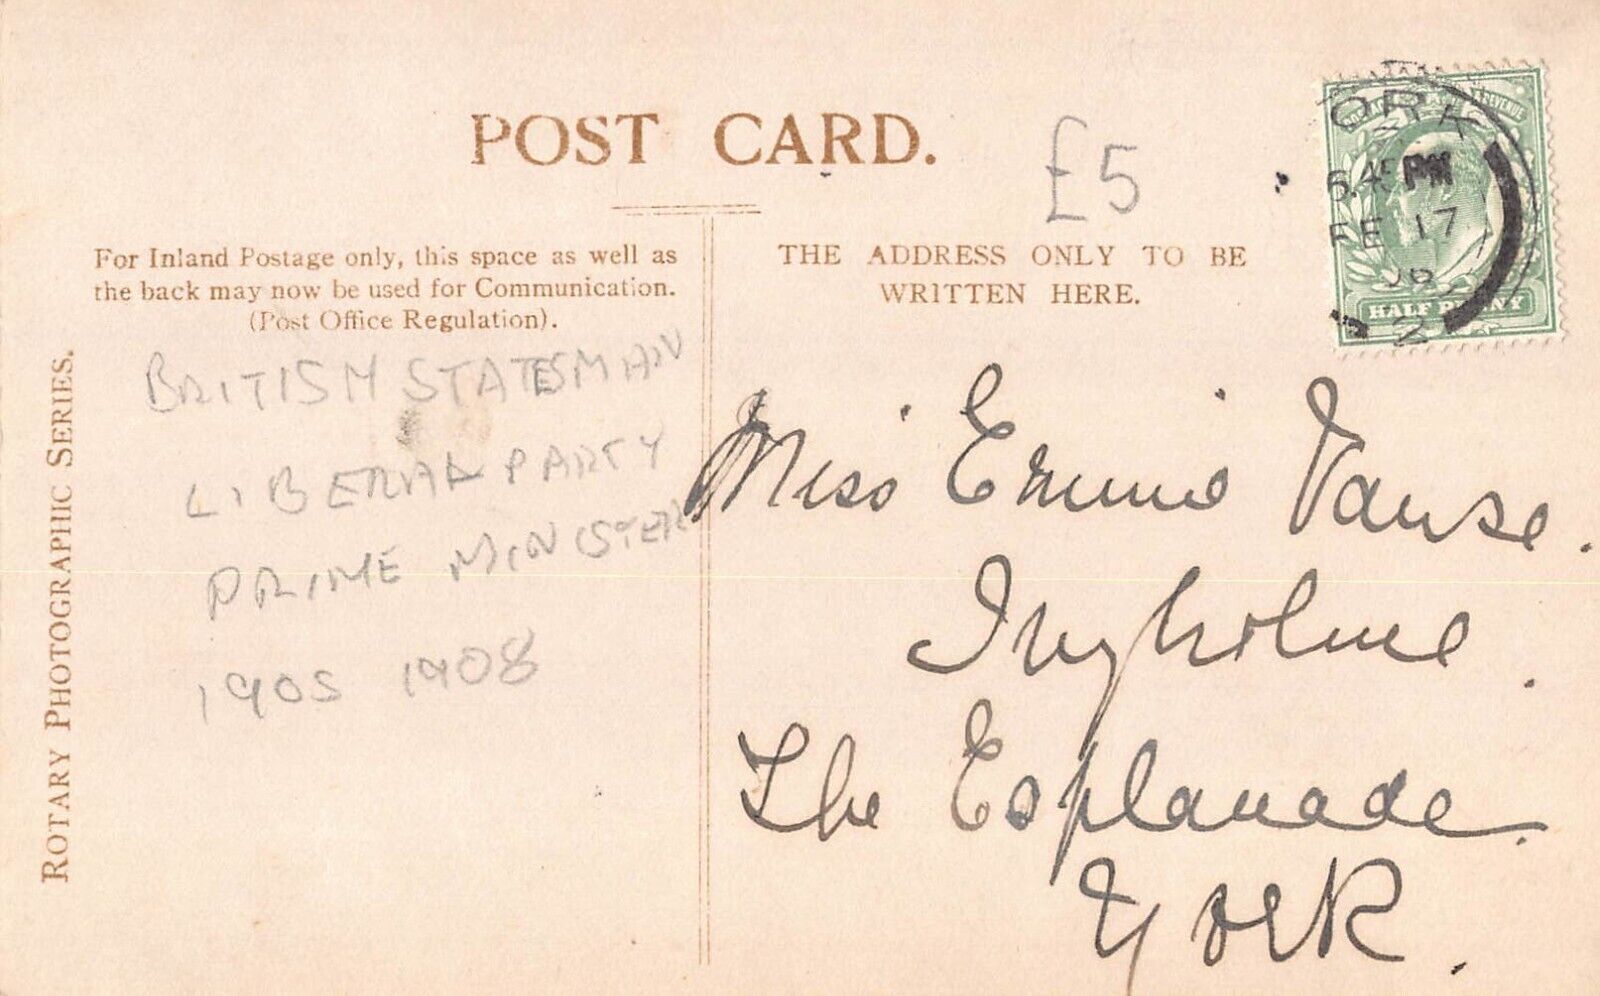 POST CARD.
£5
For Inland Postage only, this space as well as
the back may now be used for Communication.
(Post Office Regulation).
THE ADDRESS ONLY TO BE
WRITTEN HERE.
ORK
6.45 PM
FE 17
06
2
HALF PENNY
ROTARY PHOTOGRAPHIC SERIES.
BRITISH STATESMAN
LIBERAL PARTY
PRIME MINISTER
1905 1908
Miss Ermine Vause.
Ingholme.
The Esplanade.
York.